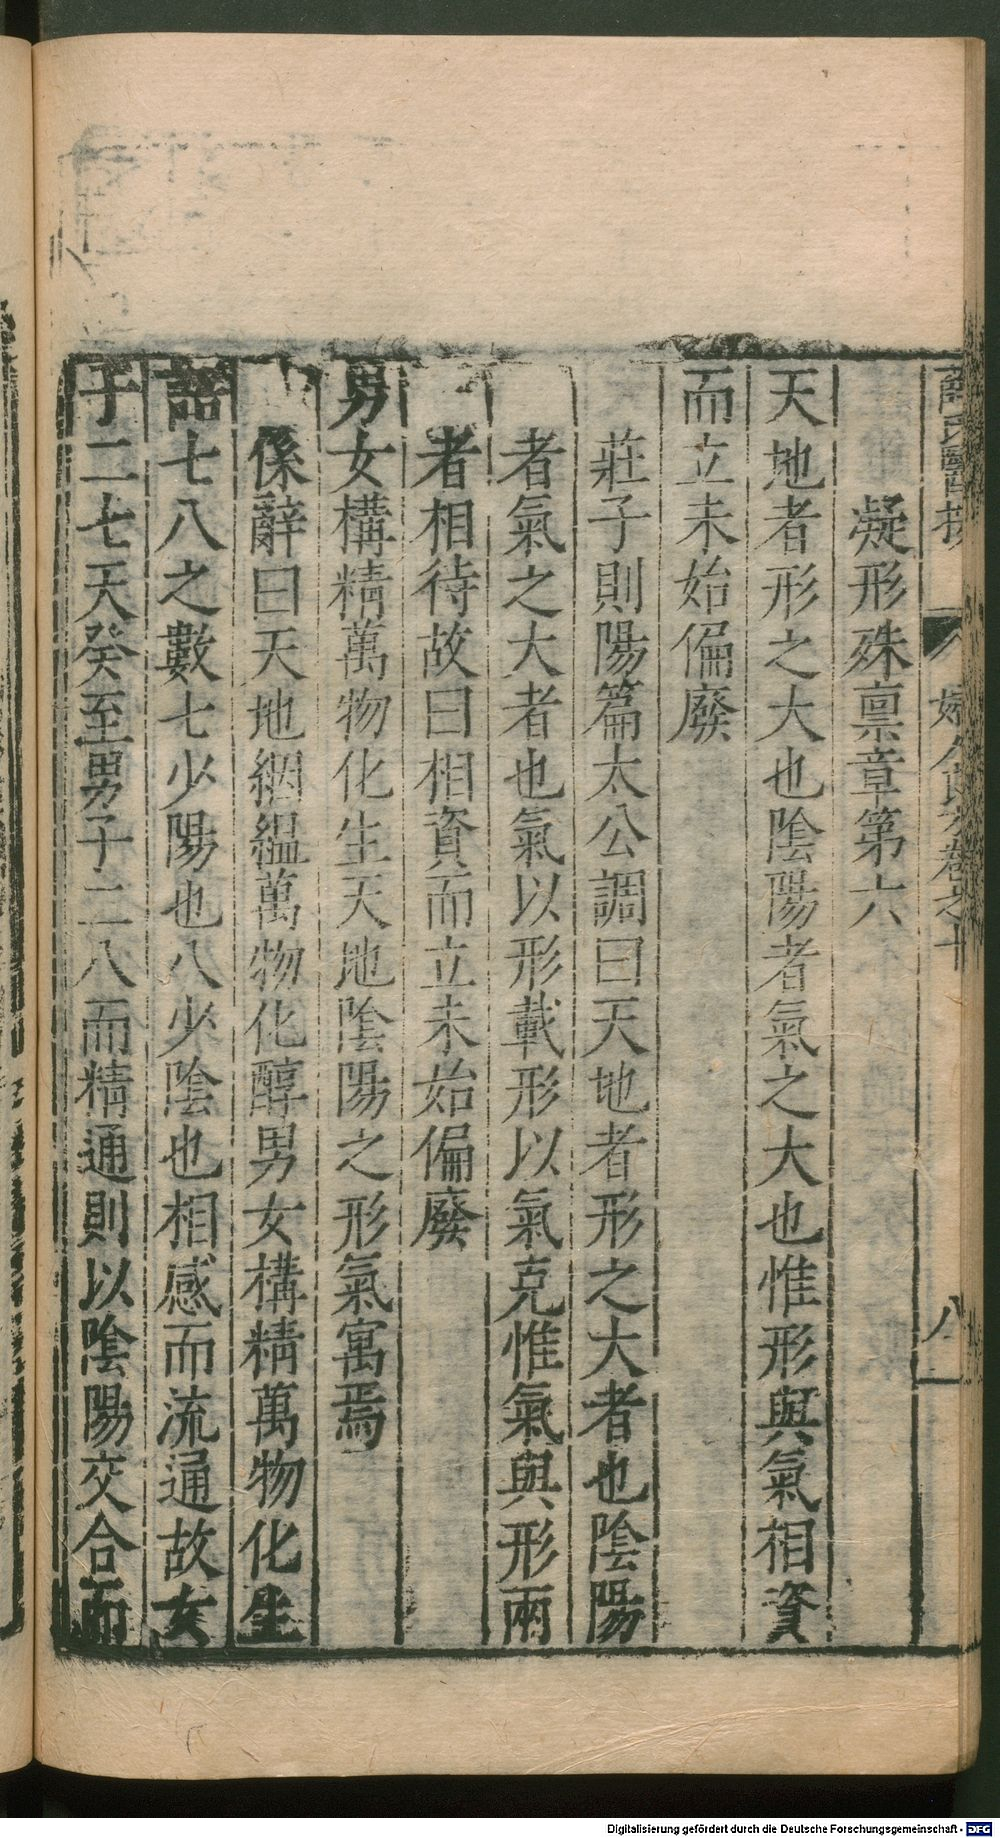 薛氏醫按 婦人良方卷之十 八
凝形殊禀章第六
天地者形之大也陰陽者氣之大也惟形與氣相資
而立未始偏廢
莊子則陽篇太公調曰天地者形之大者也陰陽
者氣之大者也氣以形載形以氣克惟氣與形兩
者相待故曰相資而立未始偏廢
男女構精萬物化生天地陰陽之形氣寓焉
係辭曰天地絪縕萬物化醇男女構精萬物化生
語七八之數七少陽也八少陰也相感而流通故女
子二七天癸至男子二八而精通則以陰陽交合而
Digitalisierung gefördert durch die Deutsche Forschungsgemeinschaft - DFG